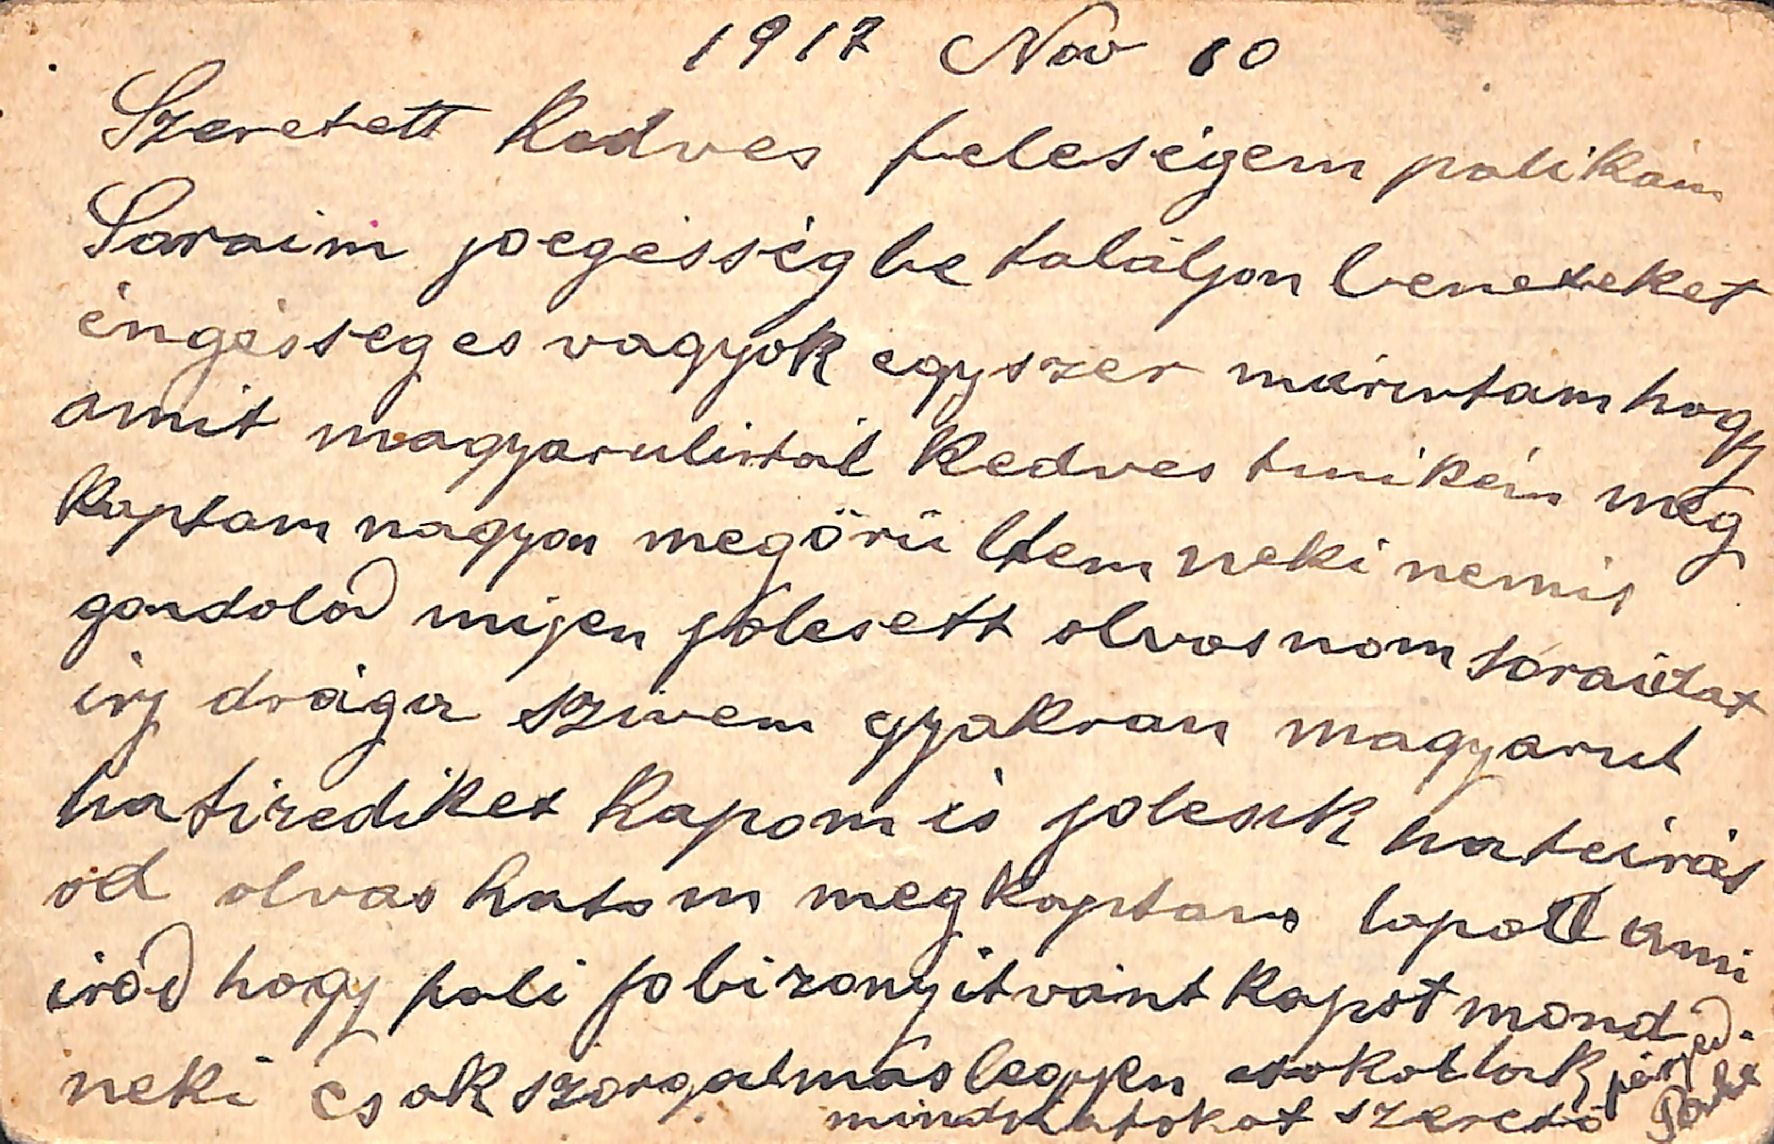 1917 Nov 10
Szeretett Kedves feleségem palikám
Soraim joegésségbe találjon beneteket
éngésseges vagyok egyszer márirtam hogy
amit magyarulirtál Kedves tunikém meg
kaptam nagyon megörü ltem neki nemis
gondolod mijen jólesett olvasnom soraidat
irj drága szivem gyakran magyarul
ha tizediket kapom is jolesik hateirás
od olvas hatom megkaptam lapod ami
iród hogy pali jobizonyitvánt kapot mond
neki csak szorgalmas legyen csokollak
mindnyátokat szerető férjed